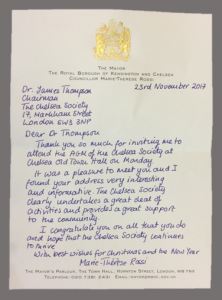 The Mayor
The Royal Borough of Kensington and Chelsea
Councillor Marie-Therese Rossi
23rd November 2017
Dr. James Thompson
Chairman
The Chelsea Society
17, Markham Street
London SW3 3NP
Dear Dr Thompson
Thank you so much for inviting me to
attend the AGM of the Chelsea Society at
Chelsea Old Town Hall on Monday
It was a pleasure to meet you and I
found your address very interesting
and informative. The Chelsea Society
clearly undertakes a great deal of
activities and provides a great support
to the community.
I congratulate you on all that you do
and hope that the Chelsea Society continues
to thrive
With best wishes for Christmas and the New Year
Marie-Thérèse Rossi
The Mayor's Parlour, The Town Hall, Hornton Street, London, W8 7NX